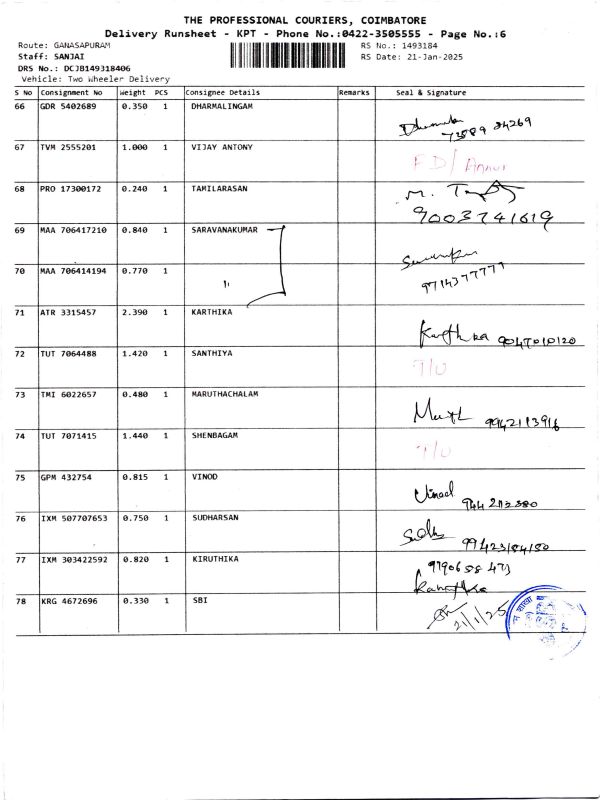 THE PROFESSIONAL COURIERS, COIMBATORE
Delivery Runsheet - KPT - Phone No.:0422-3505555 - Page No.:6
Route: GANASAPURAM RS No.: 1493184
Staff: SANJAI RS Date: 21-Jan-2025
DRS No.: DCJB149318406
Vehicle: Two Wheeler Delivery
S No Consignment No Weight PCS Consignee Details Remarks Seal & Signature
66 GDR 5402689 0.350 1 DHARMALINGAM
67 TVM 2555201 1.000 1 VIJAY ANTONY
68 PRO 17300172 0.240 1 TAMILARASAN
9003741619
69 MAA 706417210 0.840 1 SARAVANAKUMAR
70 MAA 706414194 0.770 1 "
71 ATR 3315457 2.390 1 KARTHIKA
9047010120
72 TUT 7064488 1.420 1 SANTHIYA
T/O
73 TMI 6022657 0.480 1 MARUTHACHALAM
9942113916
74 TUT 7071415 1.440 1 SHENBAGAM
T/O
75 GPM 432754 0.815 1 VINOD
Vinod
76 IXM 507707653 0.750 1 SUDHARSAN
77 IXM 303422592 0.820 1 KIRUTHIKA
78 KRG 4672696 0.330 1 SBI
21/1/25